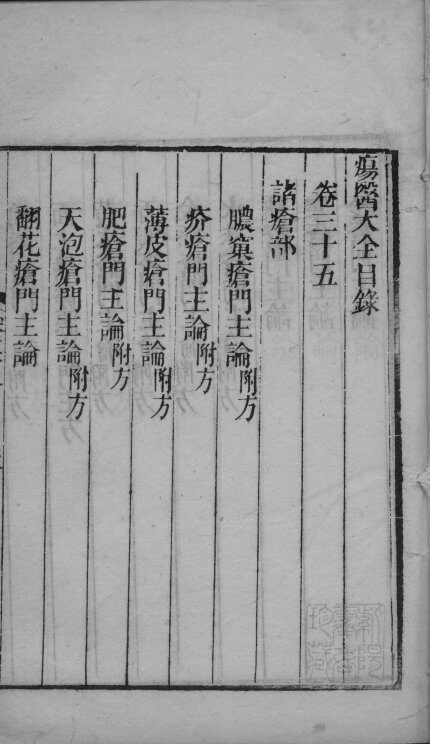 瘍醫大全目錄
卷三十五
諸瘡部
膿窠瘡門主論附方
疥瘡門主論附方
薄皮瘡門主論附方
肥瘡門主論附方
天泡瘡門主論附方
翻花瘡門主論